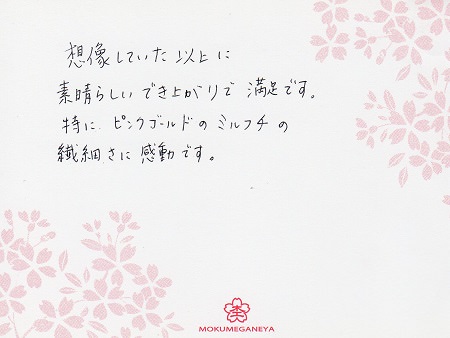 想像していた以上に
素晴らしいでき上がりで満足です。
特に、ピンクゴールドのミルフチの
繊細さに感動です。
MOKUMEGANEYA